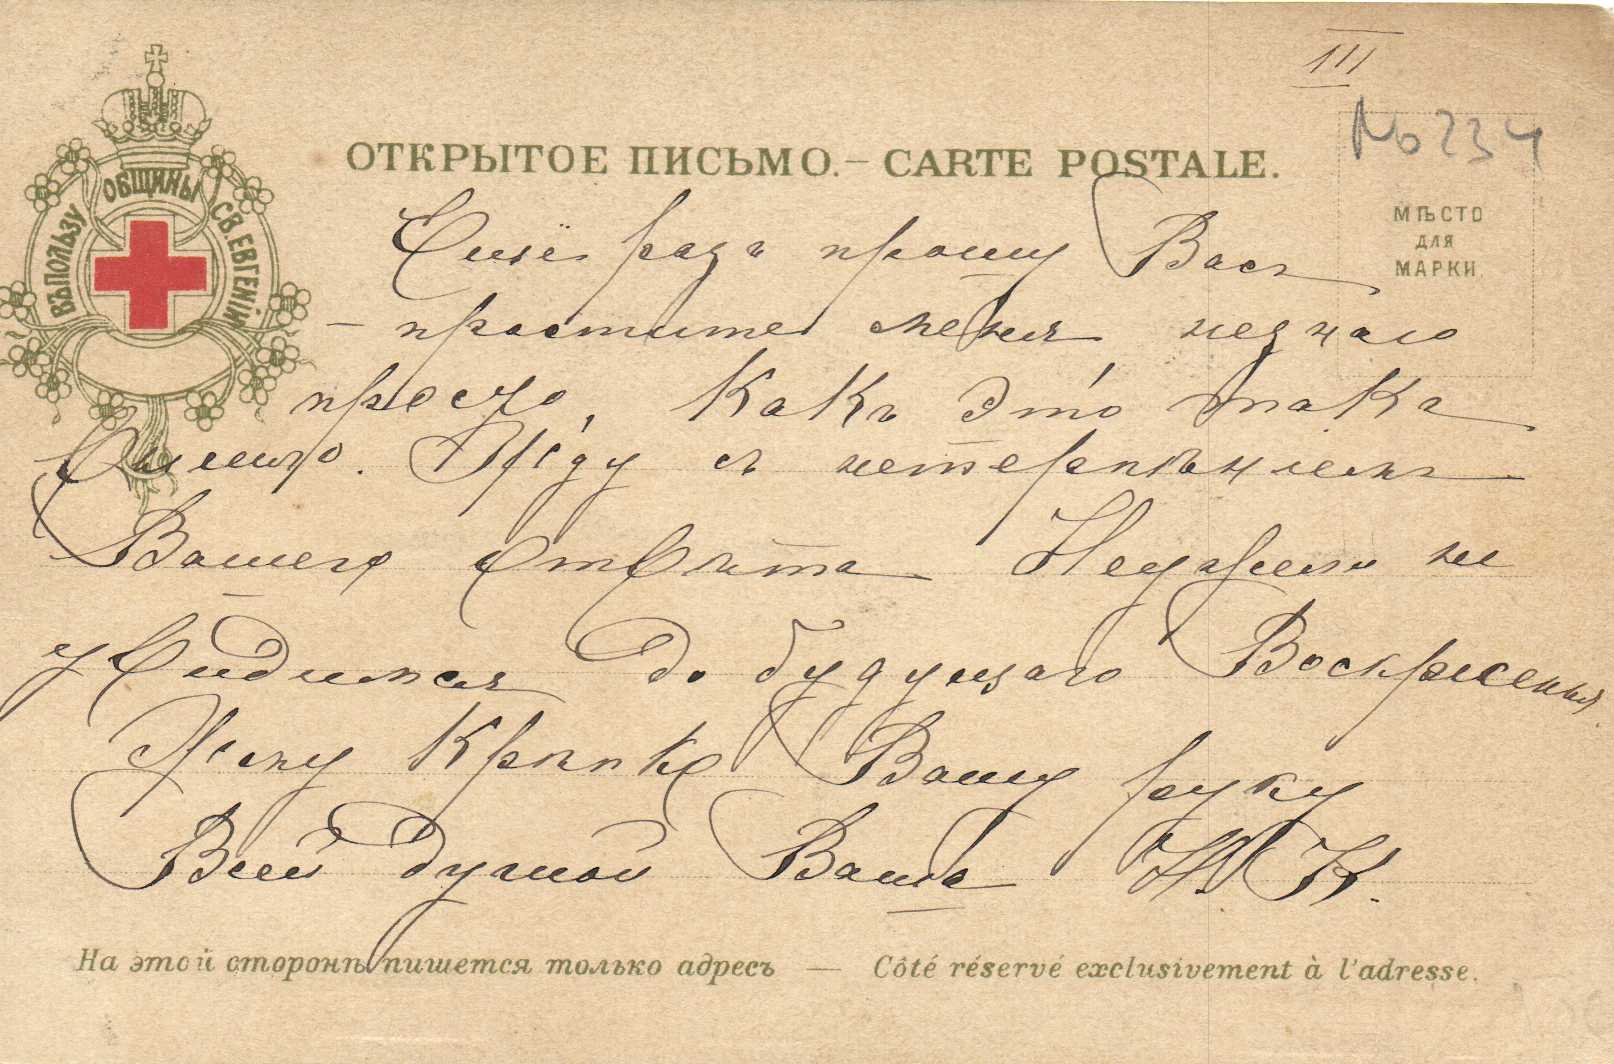 III
№ 234
ВЪ ПОЛЬЗУ ОБЩИНЫ СВ. ЕВГЕНІИ
ОТКРЫТОЕ ПИСЬМО.— CARTE POSTALE.
МѢСТО
ДЛЯ
МАРКИ.
Ещё разъ прошу Васъ
— простите меня незнаю
просто, какъ это такъ
вышло. Жду съ нетерпѣніемъ
Вашего отвѣта Неужели не
увидимся до будущаго Воскресенья
Жму крѣпко Вашу руку
Всей душой Ваша Н. К.
На этой сторонѣ пишется только адресъ — Côté réservé exclusivement à l'adresse.